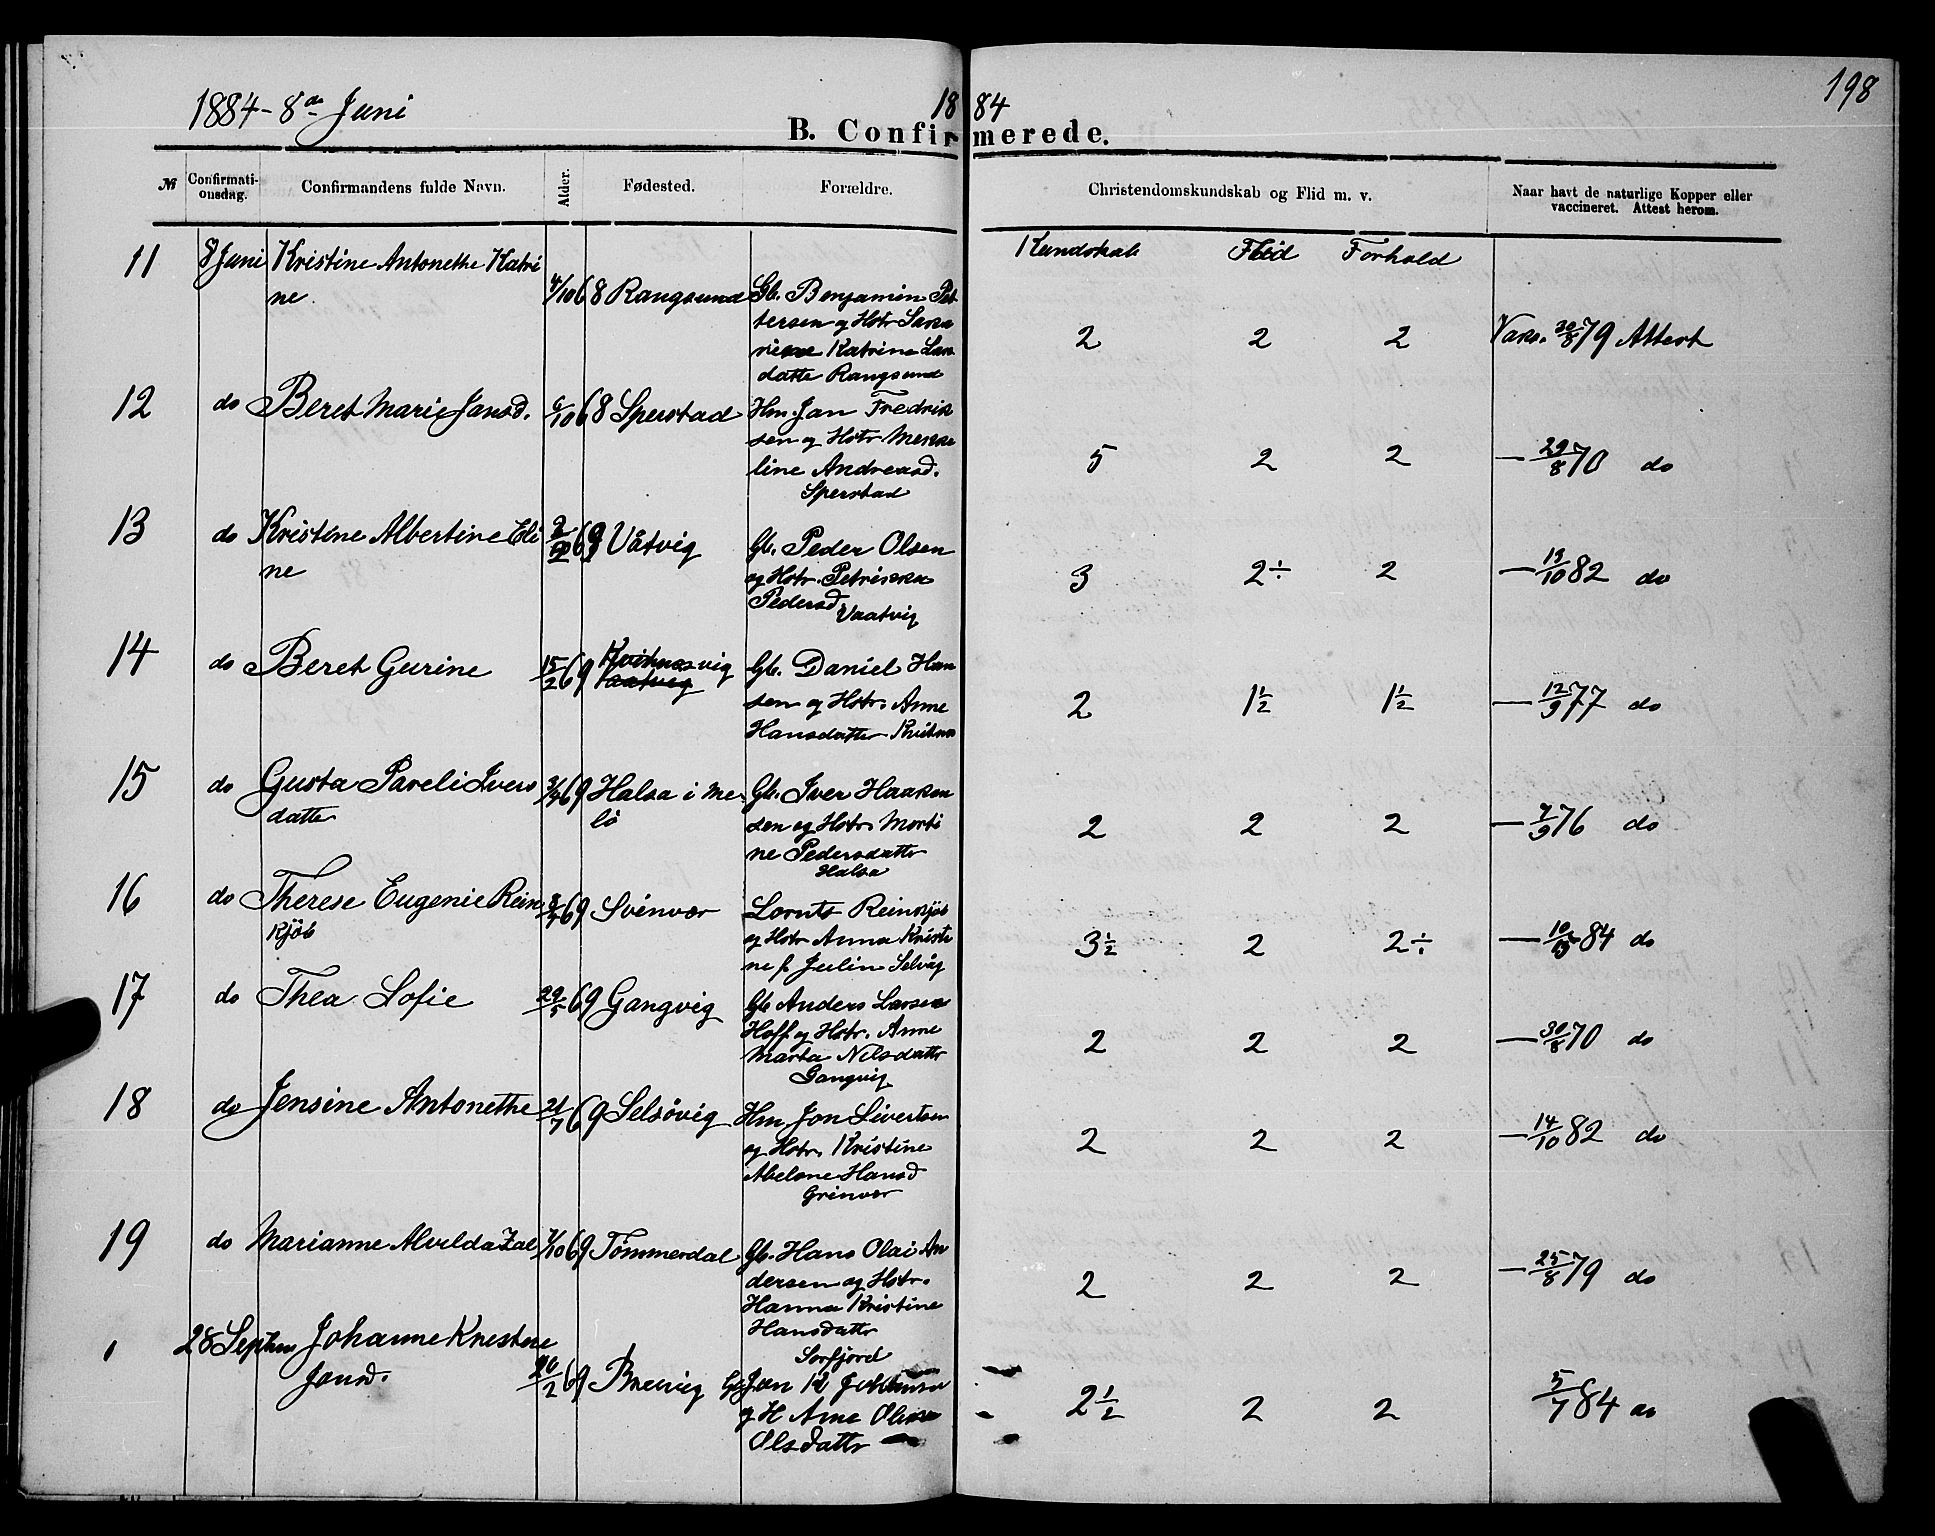 198
1884 - 8de Juni
18 84
B. Confirmerede.
№
Confirmationsdag.
Confirmandens fulde Navn.
Alder.
Fødested.
Forældre.
Christendomskundskab og Flid m. v.
Naar havt de naturlige Kopper eller vaccineret. Attest herom.
Kundskab Flid Forhold
11 8 Juni Kristine Antonethe Katri
ne 4/10 68 Rangsund Gb. Benjamin Pet
tersen og Hstr
Katrine Lars
datte Rangsund
2 2 2 Vaks. 30/8 79 Attest
12 do Beret Marie Jansd. 6/10 68 Sperstad Hm. Jan Fredrik
sen og Hstr
line Andreasd.
Sperstad
5 2 2 — 29/8 70 do
13 do Kristine Albertine Eli
ne 69 Våtvig Gb. Peder Olsen
og Hstr. Petrikka
Pedersd Vaatvig
3 2÷ 2 — 19/10 82 do
14 do Beret Gurine 15/2 69 Kvitnesvig
Gb. Daniel Han
sen og Hstr. Anne
Hansdatter Kvitnes
2 1½ 1½ — 12/9 77 do
15 do Gusta Pareli Ivers
datte 69 Halsa i Me
lö Gb. Iver Haaken
sen og Hstr. Marti
ne Pedersdattr
Halsa
2 2 2 — 7/9 76 do
16 do Therese Eugenie Rein
kjøb 69 Svinvær Lornts Reinkjøb
og Hstr Anna Kristi
ne f. Julin Selvåg
3½ 2 2÷ — 84 do
17 do Thea Sofie 29/5 69 Gangvig Gb Anders Larsen
Hoff og Hstr. Anne
Marta Nilsdattr
Gangvig
2 2 2 — 30/8 70 do
18 do Jensine Antonethe 21/7 69 Selsövig Hm Jon Sivertsen
og Hstr. Kristine
Abelone Hansd
Grinvær
2 2 2 — 14/10 82 do
19 do Marianne Alvilda Zal 1/10 69 Tömmerdal Gb. Hans Olai An
dersen og Hstr.
Hanna Kristine
Hansdattr
Sorfjord
2 2 2 — 25/8 79 do
1 28 Septbr Johanne Kristine
Jansd. 26/2 69 Breivig Gb Jan K Johansen
og H Ane
Olsdattr
2½ 2 2 5/7 84 do